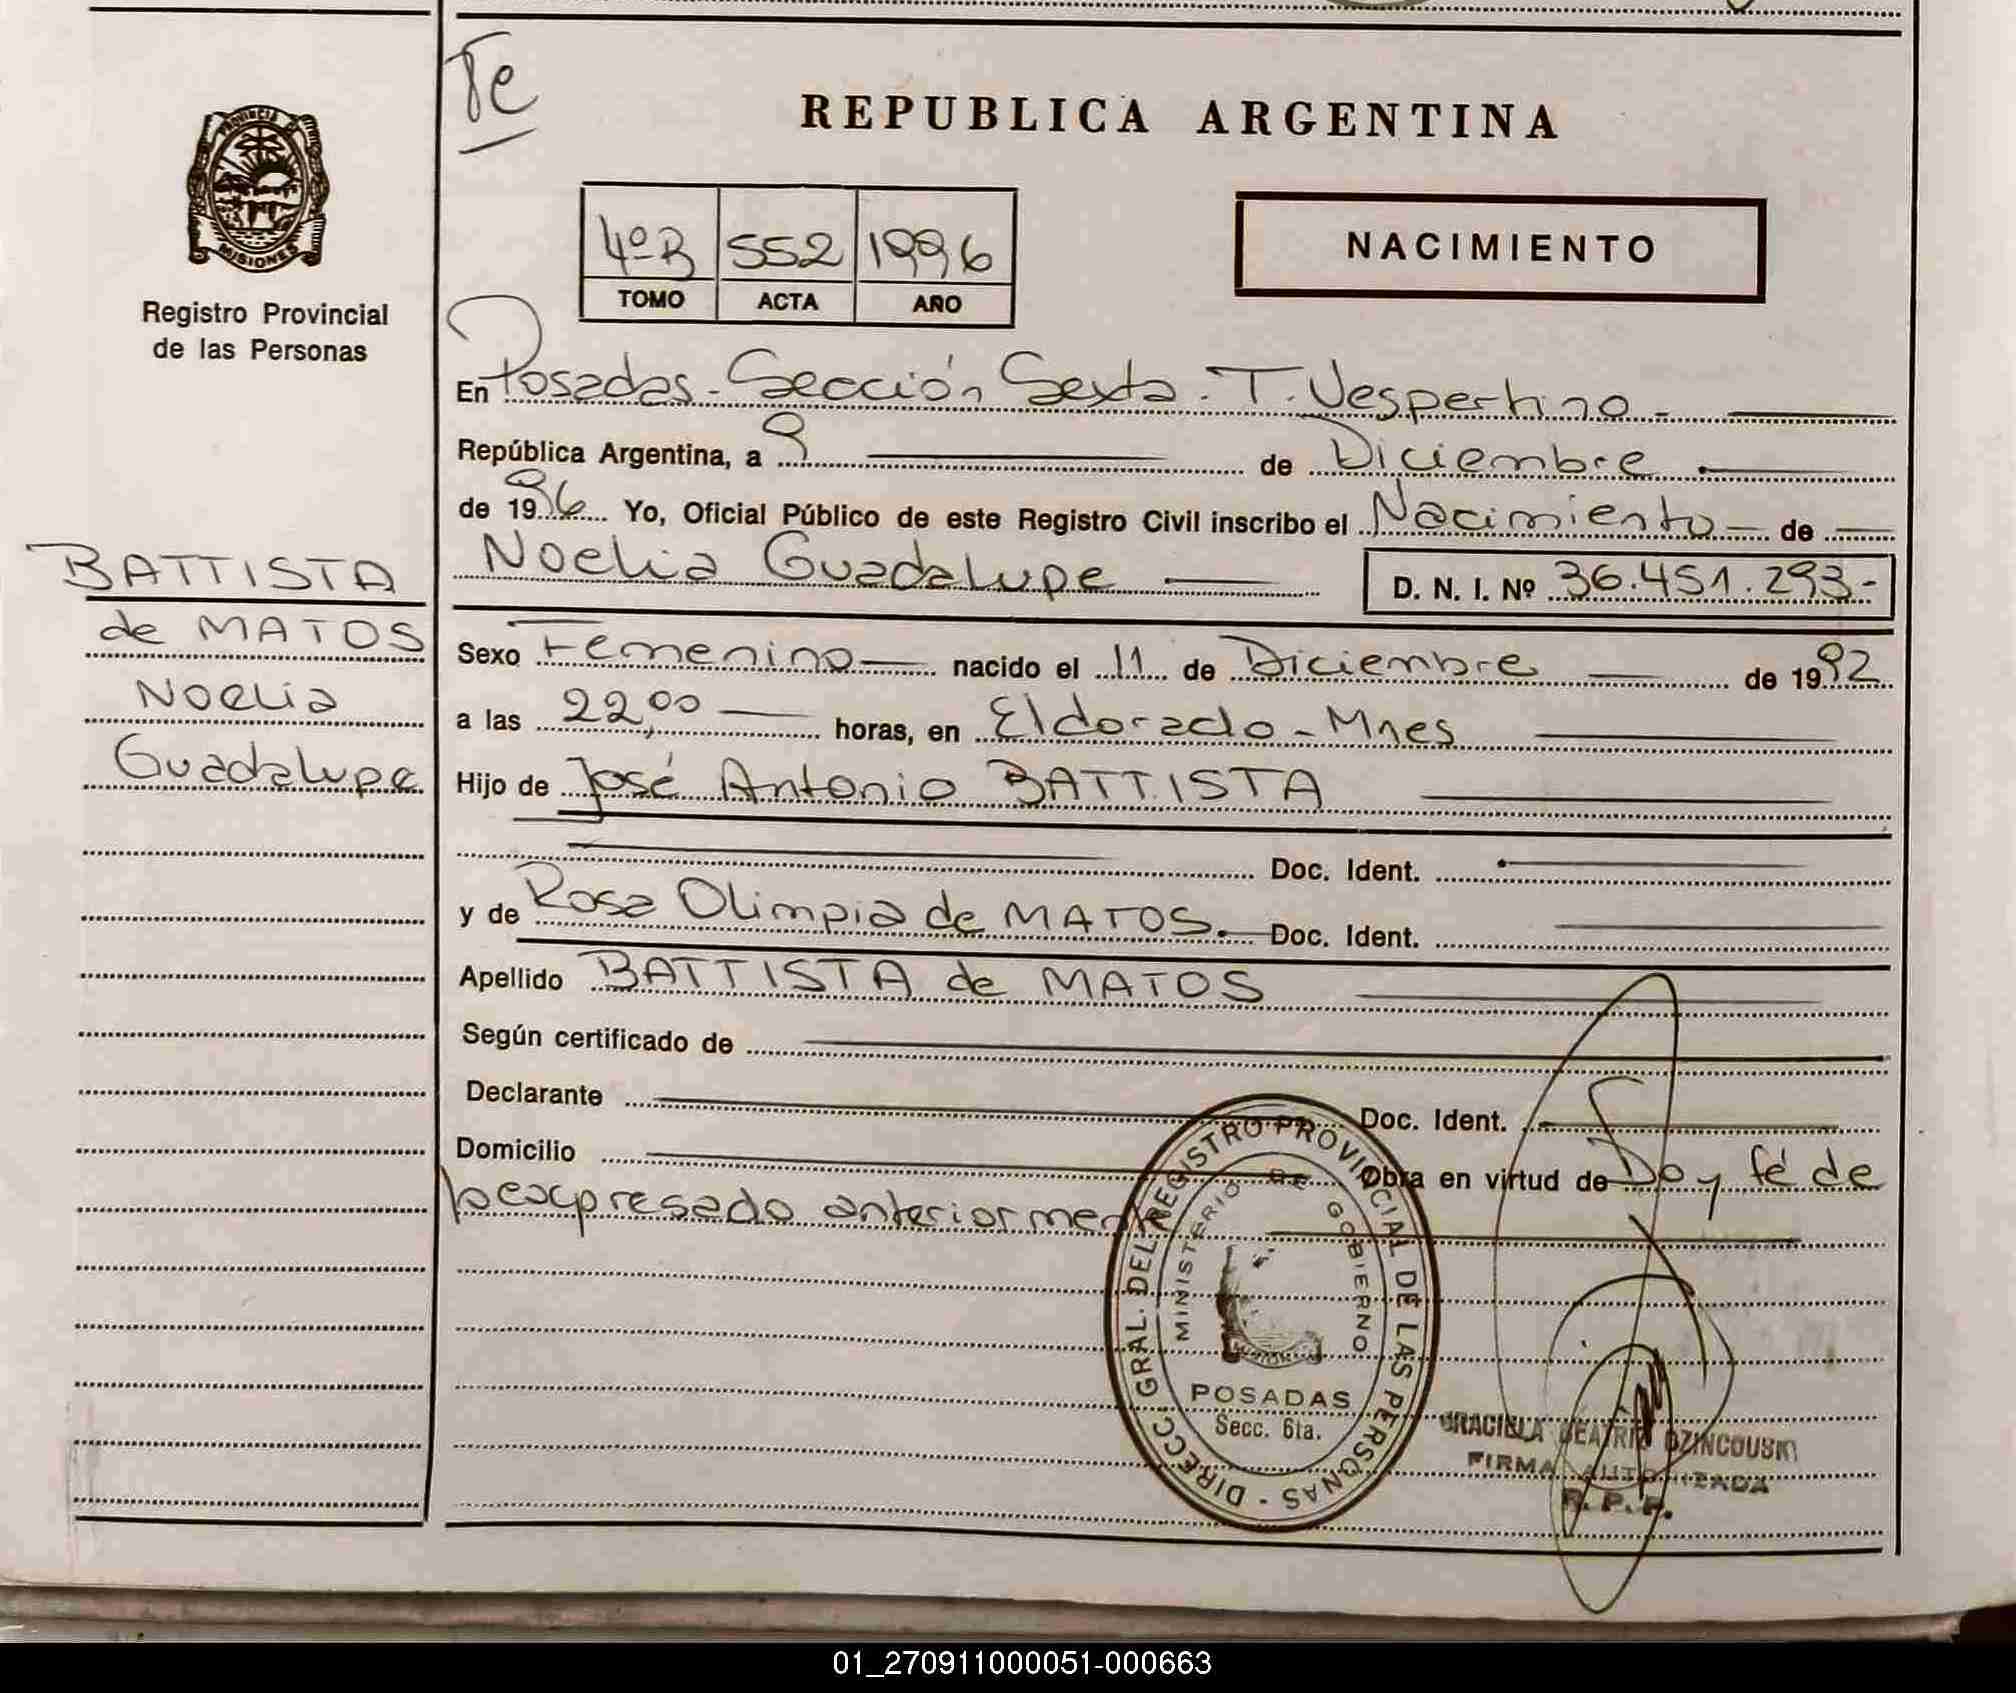 PROVINCIA
MISIONES
Registro Provincial
de las Personas
BATTISTA
de MATOS
Noelia
Guadalupe
Te
REPUBLICA ARGENTINA
4º B 552 1996
TOMO ACTA AÑO
NACIMIENTO
En Posadas - Sección Sexta - T. Vespertino -
República Argentina, a 9 de Diciembre
de 1996 Yo, Oficial Público de este Registro Civil inscribo el Nacimiento - de
Noelia Guadalupe D. N. I. Nº 36.451.293-
Sexo Femenino nacido el 11 de Diciembre de 1992
a las 22,00 horas, en Eldorado - Mnes
Hijo de José Antonio BATTISTA
Doc. Ident.
y de Rosa Olimpia de MATOS. Doc. Ident.
Apellido BATTISTA de MATOS
Según certificado de
Declarante Doc. Ident.
Domicilio Obra en virtud de Doy fé de
lo expresado anteriormente
DIRECC. GRAL. DEL REGISTRO PROVINCIAL DE LAS PERSONAS -
MINISTERIO DE GOBIERNO
POSADAS
Secc. 6ta.
GRACIELA BEATRIZ DZINCOUSKI
FIRMA AUTORIZADA
R. P. P.
01_270911000051-000663